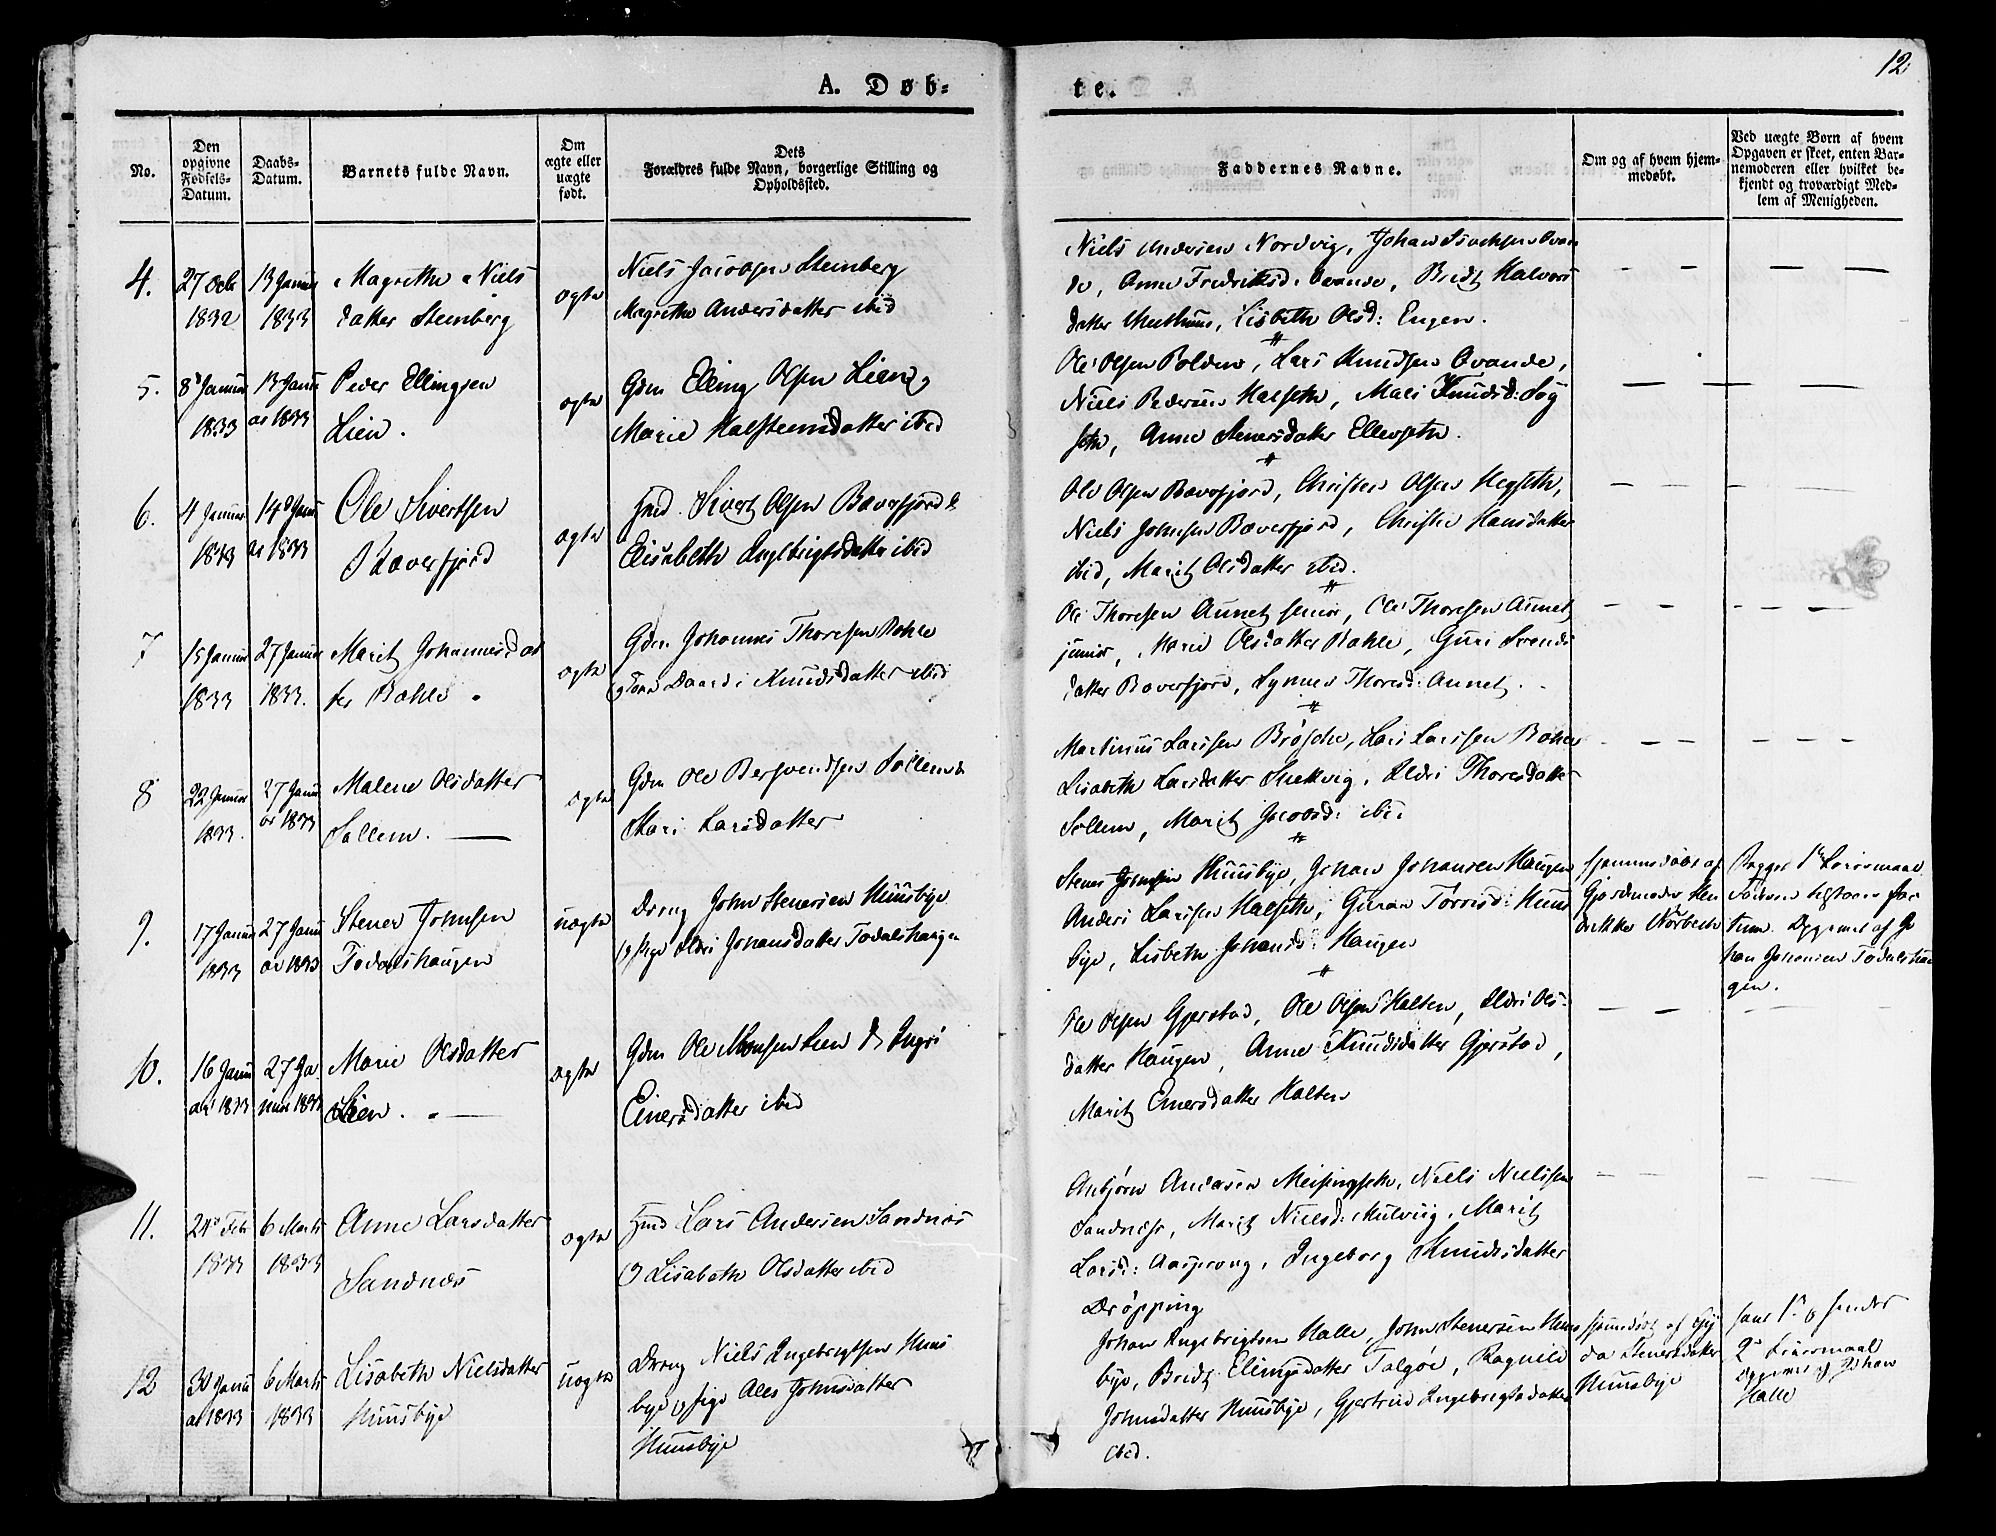 12
A. Døb=
te.
No.
Den
opgivne
Fødsels-
Datum.
Daabs-
Datum.
Barnets fulde Navn.
Om
ægte eller
uægte
født.
Dets
Forældres fulde Navn, borgerlige Stilling og
Opholdssted.
Faddernes Navne.
Om og af hvem hjem-
medøbt.
Ved uægte Børn af hvem
Opgaven er skeet, enten Bar-
nemoderen eller hvilket be-
kjendt og troværdigt Med-
lem af Menigheden.
4.
27 Octb
1832
13 Januar
1833
Magrethe Niels
datter Stenberg
ægte
Niels Jacobsen Stenberg
Magrethe Andersdatter ibid
Niels Andersen Nordvig, Johan
de, Anne Fredriksd: Qvande, Bridt Halvors
datter, Lisbeth Olsd: Engen.
5.
8d Januar
1833
13 Janu
ar 1833
Peder Ellingsen
Lien.
ægte
Gdm Elling Olsen Lien og
Marie Halsteinsdatter ibid
Ole Olsen Bolden, Lars Knudsen Qvande,
Niels Pedersen Halseth, Mari Knudsd: Sog
seth, Anne Stenersdatter Ellevseth.
6.
4 Januar
1833
14d Janu
ar 1833
Ole Sivertsen
Bæverfjord
ægte
Sivert Olsen Bæverfjord &
Elisabeth Ingebrigtsdatter ibid
Ole Olsen Bæverfjord, Christen Olsen Hegseth,
Niels Johnsen Bæverfjord, Christie Hansdatter
ibid, Marit Olsdatter ibid.
7
15 Januar
1833
27 Januar
1833.
Marit Johannesdat
ter Bahle.
ægte
Gdm Johannes Thoresen Bahle
og Knudsdatter ibid
Ole Thoresen Aunet senior, Ole Thoresen Aunet
junior, Marie Olsdatter Bahle, Guri Svends
datter Bæverfjord, Thoresd: Aunet.
8
22 Januar
1833.
27 Janu
ar 1833
Malene Olsdatter
Sollem.
ægte
Gdm Ole Bersvendsen Sollem &
Kari Larsdatter
Martinus Larssen Brøske, Lars Larssen Bahle
Lisabeth Larsdatter, Thoresdatter
Sollem, Marit Jacobsd: ibid
9.
17 Januar
1833
27 Janu
ar 1833
Stener Johnsen
Todalshaugen
uægte
Dreng John Stenersen Huusbye
og Pige Eldri Johansdatter Todalshaugen
Stener Johnsen Huusbye, Johan Johansen Haugen
Anders Larssen Halseth, Guran Torrisd: Huus
bye, Lisbeth Johansd: Haugen
hjemmedøbt af
Gjordemoder Hen
drikke Norbech
Begges 1te Leiermaal
Faderen tilstaaer Fac
tum. Opgivet af Jo
han Johansen Todalshau
gen.
10.
16 Janu
ar 1833
27 Ja.
nuar 1833
Marie Olsdatter
Lien.
ægte
Gdm Ole Monsen Lien & Ingri
Einersdatter ibid
Ole Olsen Gjerstad, Ole Olsen Halten, Eldri Ols-
datter Haugen, Anne Knudsdatter Gjerstad,
Marit Einersdatter Halten
11.
24d Feb
1833
6 Marts
1833
Anne Larsdatter
Sandnæs
ægte
Lars Andersen Sandnæs
og Lisabeth Olsdatter ibid
Anbjørn Andersen Meisingseth, Niels Nielsen
Sandnæs, Marit Nielsd: Mulvig, Marit
Larsd: Aasprong, Ingeborg Knudsdatter
Drøpping
12
30 Janu
ar 1833
6 Marts
1833
Lisabeth Nielsdatter
Huusbye
uægte
Dreng Niels Ingebrigtsen Huus
bye og Pige Ales Johnsdatter
Huusbye
Johan Ingebrigtsen Halle, John Stenersen Huus
bye, Bridt Elingsdatter Talgøe, Ragnild
Johnsdatter Huusbye, Gjertrud Ingebrigtsdatter
ibid.
hjemdøbt af
da Stenersdatter
Huusbye
hans 1te og hendes
2d Leiermaal
opgivet af Johan
Halle